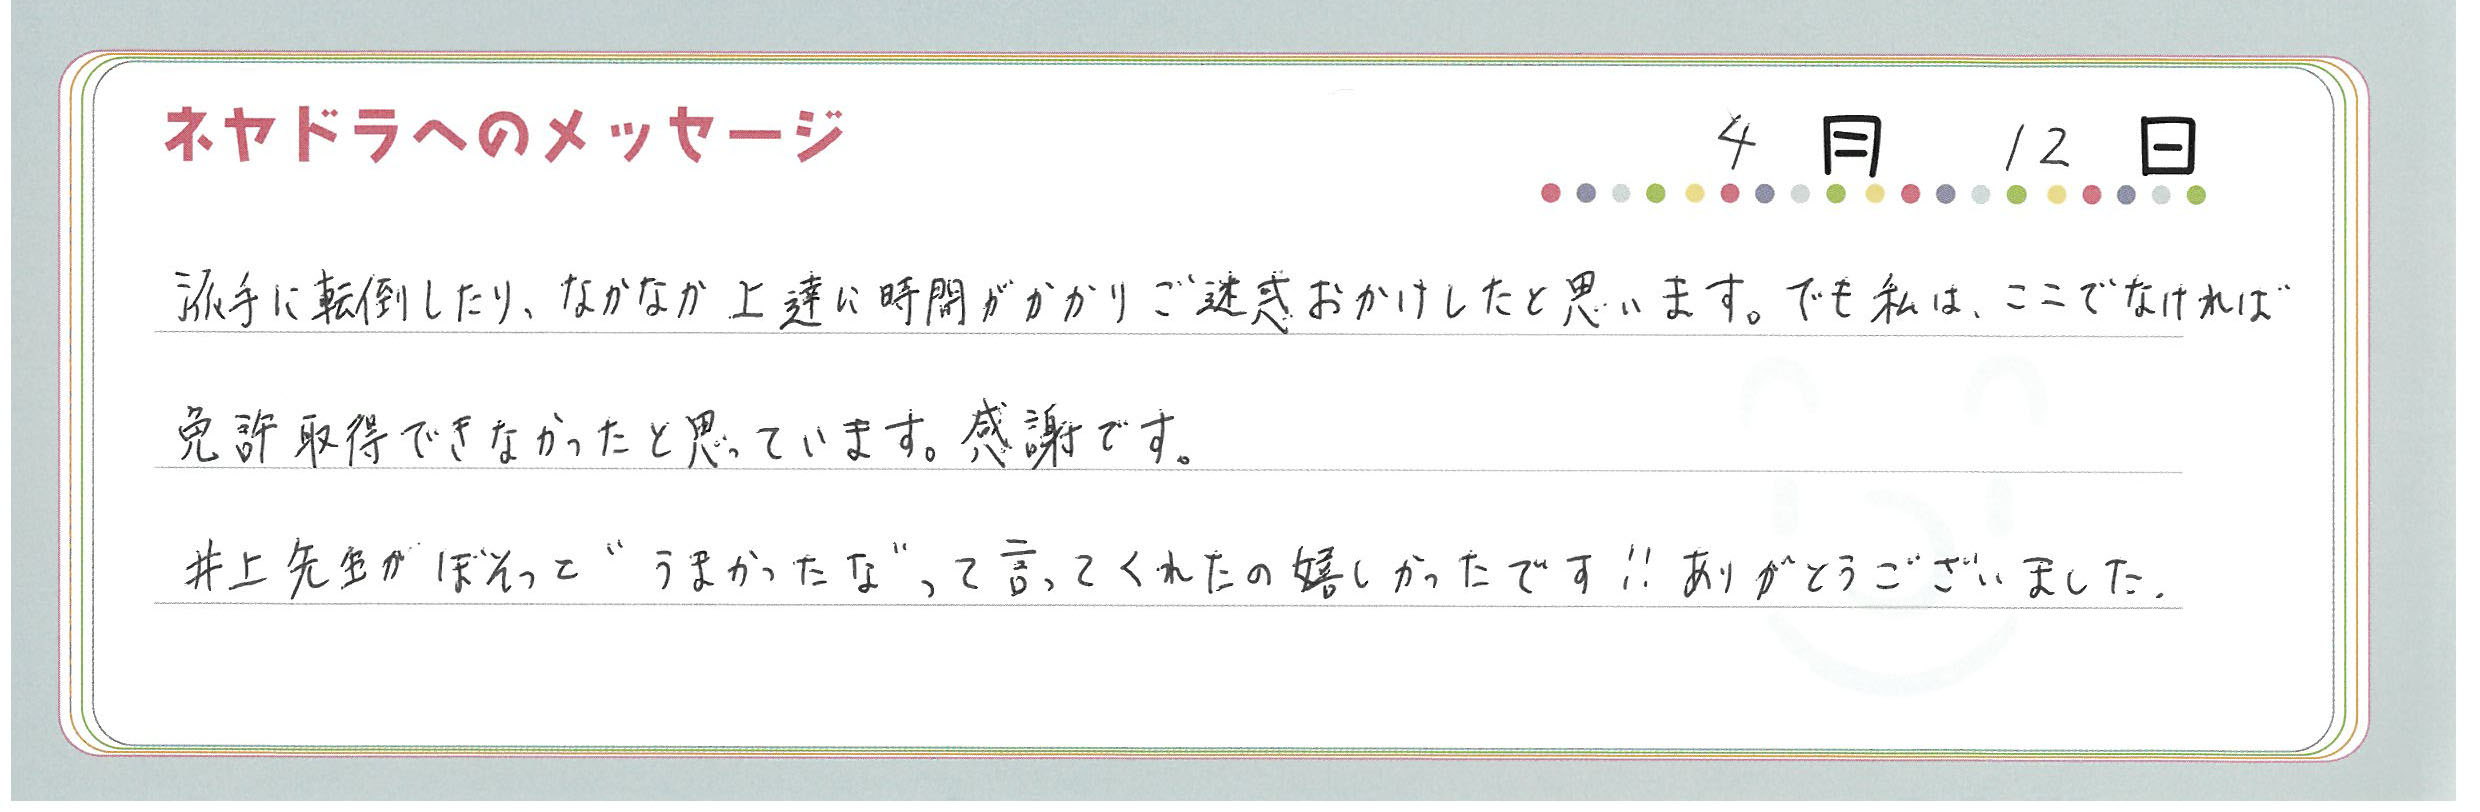 ネヤドラへのメッセージ
4月 12日
派手に転倒したり、なかなか上達に時間がかかりご迷惑おかけしたと思います。でも私は、ここでなければ
免許取得できなかったと思っています。感謝です。
井上先生がぼそっと“うまかったな”って言ってくれたの嬉しかったです!!ありがとうございました.